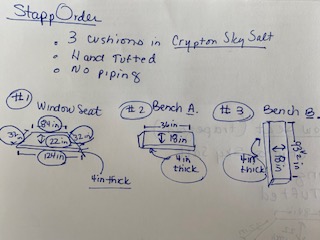 Stapp Order
• 3 cushions in Crypton Sky Salt
• Hand Tufted
• No piping
#1 Window Seat
84in
32in
22in
32in
124in
4in thick
#2 Bench A.
36in
18in
4in thick.
#3 Bench B.
4in thick.
18in